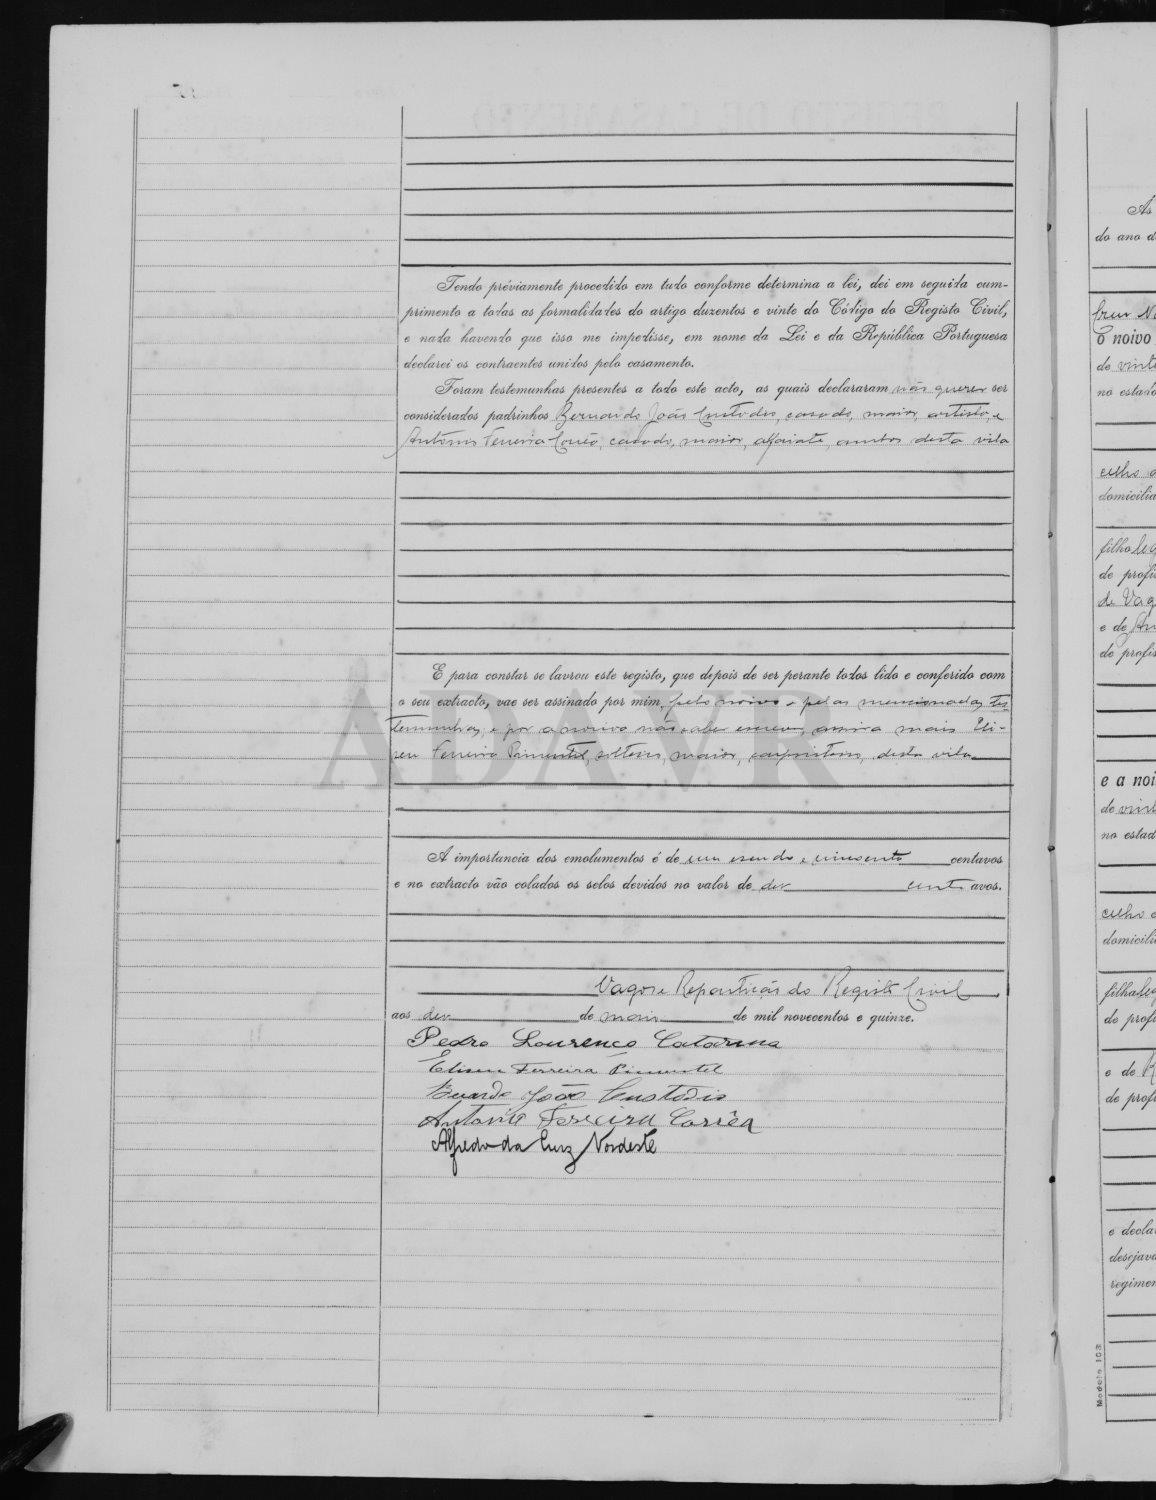 Tendo préviamente procedido em tudo conforme determina a lei, dei em seguida cum-
primento a todas as formalidades do artigo duzentos e vinte do Código do Registo Civil,
e nada havendo que isso me impedisse, em nome da Lei e da República Portuguesa
declarei os contraentes unidos pelo casamento.
Foram testemunhas presentes a todo este acto, as quais declararam não querer ser
considerados padrinhos Bernardo João Custodio, casado, maior, artista, e
António Ferreira Corrêa, casado, maior, alfaiate, ambos desta vila
E para constar se lavrou este registo, que depois de ser perante todos lido e conferido com
o seu extracto, vae ser assinado por mim, pelo noivo e pelas mencionadas tes-
temunhas, e por a noiva não saber escrever, assina mais Eli-
seu Ferreira Pimentel, solteiro, maior, carpinteiro, desta vila
A importancia dos emolumentos é de um escudo e cincoenta centavos
e no extracto vão colados os selos devidos no valor de dez centavos.
Vagos e Repartição do Registo Civil
aos dez de maio de mil novecentos e quinze.
Pedro Lourenço Catarina
Eliseu Ferreira Pimentel
Bernardo João Custodio
Antonio Ferreira Corrêa
Alfredo da Cruz Nordeste
ADAVR
As
do ano d
Cruz No
o noivo
de vinte
no estado
celho d
domicilia
filho leg
de profi
de Vag
e de
de profis
e a noi
de vint
no estad
celho d
domicili
filha leg
de prof
e de
de prof
e decla
desejava
regimen
Modelo 103